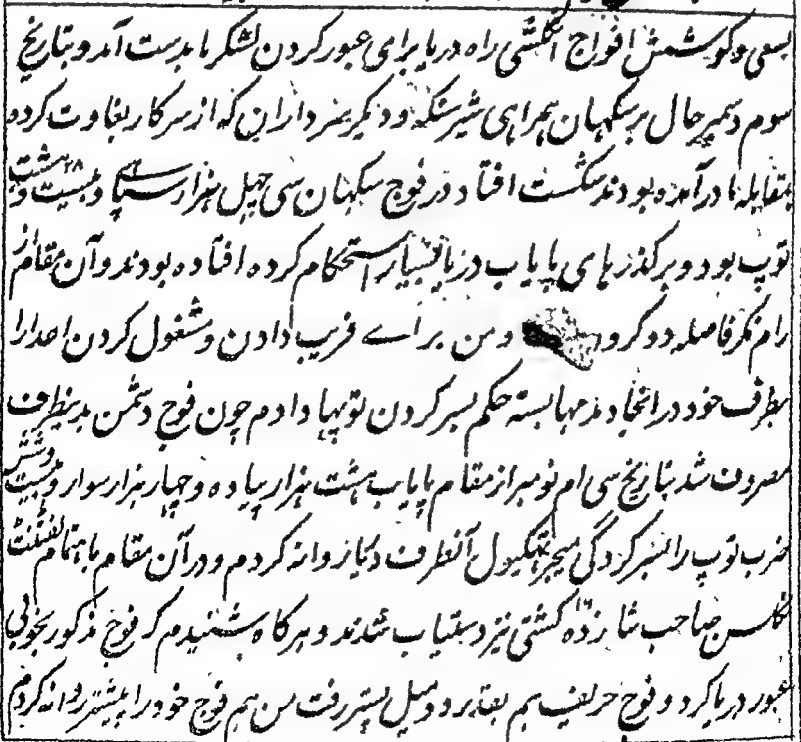 بسعی و کوشش افواج انگلشی راه دریا برای عبور کردن لشکر ما بدست آمد و بتاریخ
سوم دسمبر حال بر سنگهان همراهی شیرسنگه و دیگر سرداران که از سرکار بغاوت کرده
بمقابله ما درآمده بودند شکست افتاد در فوج سکهان سی چهل هزار سپاہے و بیست و هشت ۲۸
توپ بود و بر گذرهای پایاب دریا بسیار استحکام کرده افتاده بودند و آن مقام از
رام نگر فاصله دو کروه و من برای فریب دادن و مشغول کردن اعدا را
بطرف خود در انجا دمدمها بسته حکم بسر کردن توپها دادم چون فوج دشمن بدینطرف
مصروف شد بتاریخ سی ام نومبر از مقام پایاب هشت هزار پیاده و چهار هزار سوار و بیست و شش
ضرب توپ را بسر کردگی میجر آنطرف دریا روانه کردم و در آن مقام باهتمام لفٹننٹ
نکلسن صاحب شانزده ۱۶ کشتی نیز دستیاب شدند و هرگاه شنیدم که فوج مذکور بخوبی
عبور دریا کرد و فوج حریف هم بقدر دو میل پستر رفت من هم فوج خود را پیشتر روانه کردم